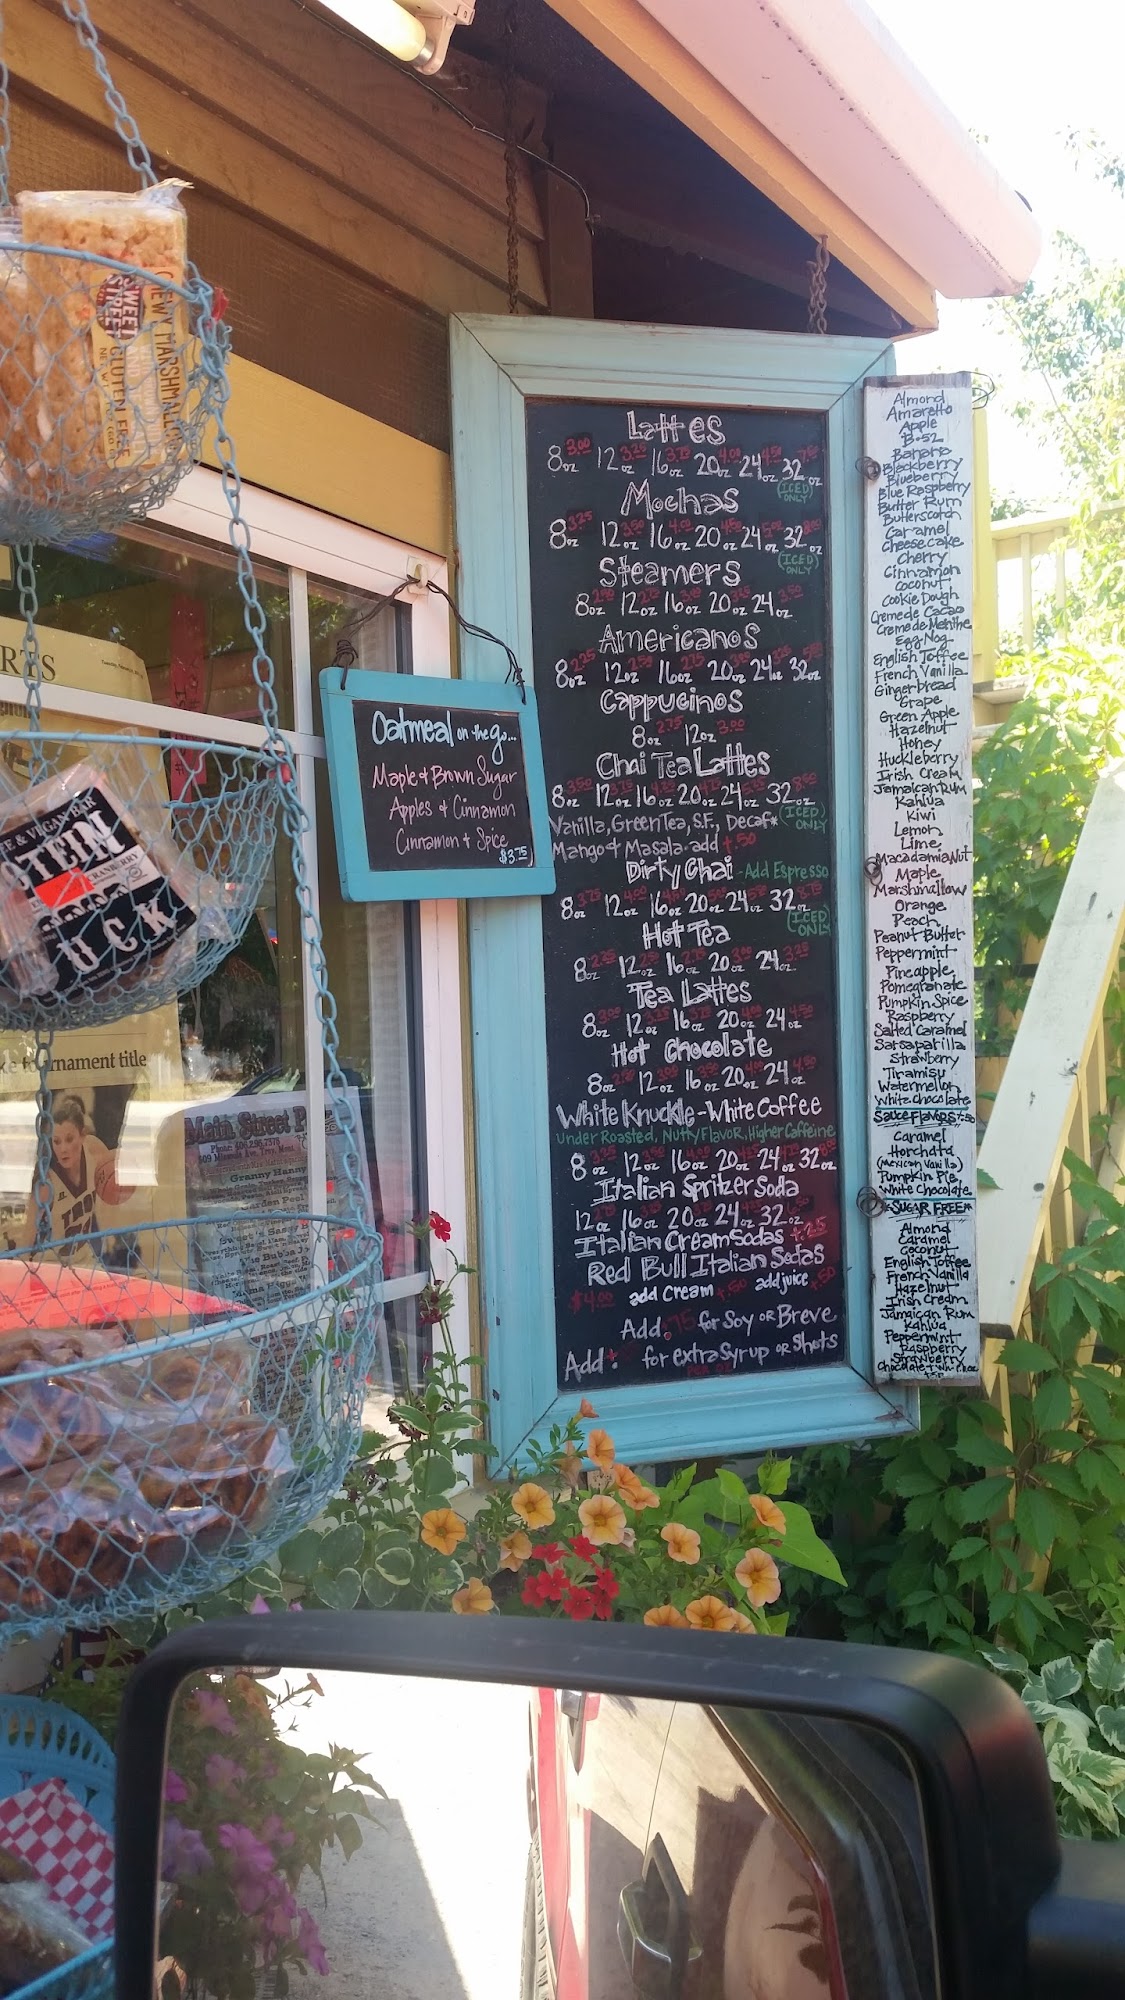 Lattes
8oz 3.00 12oz 3.25 16oz 3.75 20oz 4.00 24oz 4.50 32oz
(ICED ONLY)
Mochas
8oz 3.25 12oz 3.50 16oz 4.00 20oz 4.50 24oz 5.00 32oz 8.00
(ICED ONLY)
Steamers
8oz 12oz 16oz 20oz 24oz 3.50
Americanos
8oz 2.25 12oz 2.50 16oz 2.75 20oz 3.00 24oz 32oz
Cappucinos
8oz 2.75 12oz 3.00
Chai Tea Lattes
8oz 3.50 12oz 16oz 20oz 24oz 32oz 8.50
Vanilla, Green Tea, S.F., Decaf* (ICED ONLY)
Mango & Masala - add +.50
Dirty Chai - Add Espresso
8oz 3.75 12oz 4.00 16oz 20oz 24oz 32oz 8.75
(ICED ONLY)
Hot Tea
8oz 2.25 12oz 2.50 16oz 20oz 3.00 24oz 3.25
Tea Lattes
8oz 3.00 12oz 3.25 16oz 3.75 20oz 4.00 24oz 4.50
Hot Chocolate
8oz 12oz 3.00 16oz 3.50 20oz 4.00 24oz 4.50
White Knuckle - White Coffee
Under Roasted, Nutty Flavor, Higher Caffeine
8oz 3.25 12oz 3.50 16oz 4.00 20oz 24oz 32oz
Italian Spritzer Soda
12oz 16oz 20oz 24oz 32oz
Italian Cream Sodas +.25
Red Bull Italian Sodas
$4.00 add cream +.50 add juice +.50
Add .75 for Soy or Breve
Add + for extra Syrup or Shots
Oatmeal on the go...
Maple & Brown Sugar
Apples & Cinnamon
Cinnamon & Spice
$3.75
Almond
Amaretto
Apple
B-52
Banana
Blackberry
Blueberry
Blue Raspberry
Butter Rum
Butterscotch
Caramel
Cheesecake
Cherry
Cinnamon
Coconut
Cookie Dough
Creme de Cacao
Creme de Menthe
Egg Nog
English Toffee
French Vanilla
Gingerbread
Grape
Green Apple
Hazelnut
Honey
Huckleberry
Irish Cream
Jamaican Rum
Kahlua
Kiwi
Lemon
Lime
Macadamia Nut
Maple
Marshmallow
Orange
Peach
Peanut Butter
Peppermint
Pineapple
Pomegranate
Pumpkin Spice
Raspberry
Salted Caramel
Sarsaparilla
Strawberry
Tiramisu
Watermelon
White Chocolate
Sauce Flavors +.50
Caramel
Horchata
(Mexican Vanilla)
Pumpkin Pie
White Chocolate
*SUGAR FREE*
Almond
Caramel
Coconut
English Toffee
French Vanilla
Hazelnut
Irish Cream
Jamaican Rum
Kahlua
Peppermint
Raspberry
Strawberry
SWEET
STREET
CHEWY MARSHMALLOW
GLUTEN FREE
RTS
E & VEGAN BAR
TEIN
CRANBERRY
UCK
ke tournament title
Main Street
Granny Hanny